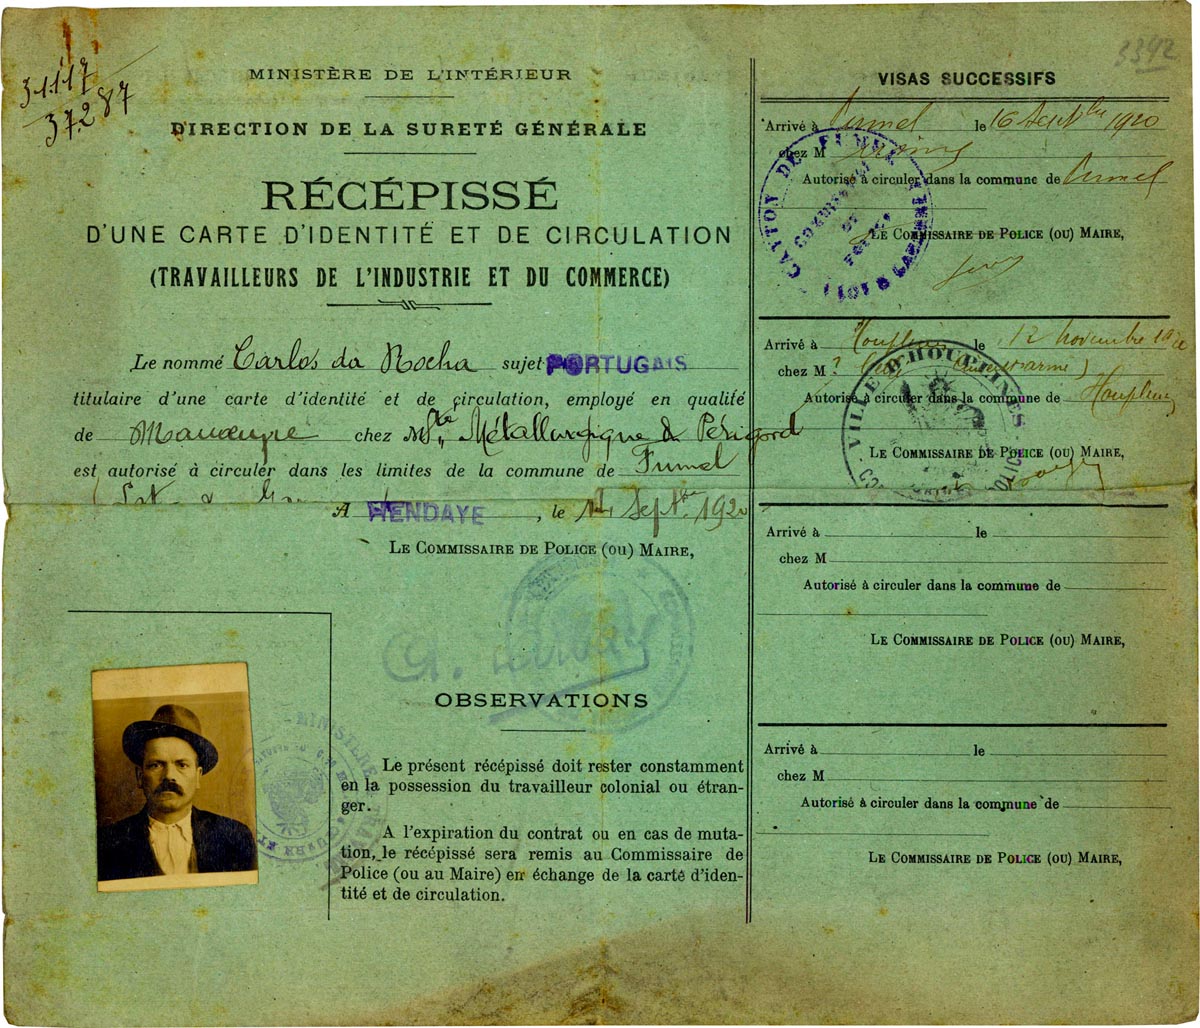 31117
37287
MINISTÈRE DE L'INTÉRIEUR
DIRECTION DE LA SURETÉ GÉNÉRALE
RÉCÉPISSÉ
D'UNE CARTE D'IDENTITÉ ET DE CIRCULATION
(TRAVAILLEURS DE L'INDUSTRIE ET DU COMMERCE)
Le nommé Carlos da Rocha sujet PORTUGAIS
titulaire d'une carte d'identité et de circulation, employé en qualité
de Manœuvre chez M Sté Métallurgique d Périgord
est autorisé à circuler dans les limites de la commune de Fumel
A HENDAYE, le 14 Septbre 1920
LE COMMISSAIRE DE POLICE (OU) MAIRE,
OBSERVATIONS
Le présent récépissé doit rester constamment
en la possession du travailleur colonial ou étran-
ger.
A l'expiration du contrat ou en cas de muta-
tion, le récépissé sera remis au Commissaire de
Police (ou au Maire) en échange de la carte d'iden-
tité et de circulation.
3392
VISAS SUCCESSIFS
Arrivé à Fumel le 16 Septbre 1920
chez M
Autorisé à circuler dans la commune de Fumel
LE COMMISSAIRE DE POLICE (OU) MAIRE,
CANTON DE FUMEL
COMMISSAIRE DE POLICE
(LOT & GARONNE)
Arrivé à Houplines le 12 novembre
chez M ?
Autorisé à circuler dans la commune de Houplines
VILLE D'HOUPLINES
LE COMMISSAIRE DE POLICE (OU) MAIRE,
Arrivé à le
chez M
Autorisé à circuler dans la commune de
LE COMMISSAIRE DE POLICE (OU) MAIRE,
Arrivé à le
chez M
Autorisé à circuler dans la commune de
LE COMMISSAIRE DE POLICE (OU) MAIRE,